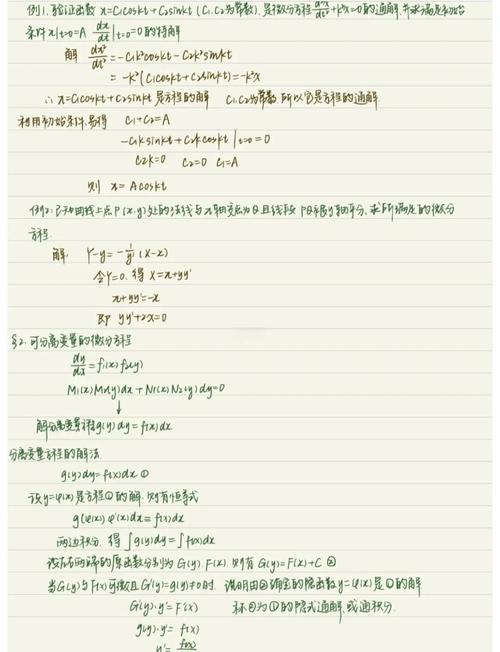 例1. 验证函数 x=C₁coskt+C₂sinkt (C₁.C₂为常数). 是微分方程 d²x/dt²+k²x=0的通解. 并求满足初始
条件 x|t=0=A  dx/dt|t=0=0的特解
解  dx²/dt²=-C₁k²coskt-C₂k²sinkt
=-k²(C₁coskt+C₂sinkt)=-k²x
∴ x=C₁coskt+C₂sinkt 是方程的解  C₁.C₂为常数. 所以它是方程的通解.
利用初始条件.易得  C₁+C₂=A
-C₁ksinkt+C₂kcoskt|t=0=0
C₂k=0  C₂=0  C₁=A
则 x=Acoskt
例2: 已知曲线上点P(x.y)处的法线与x轴交点为Q且线段PQ被y轴平分、求所满足的微分
方程.
解.  Y-y=-1/y'(X-x)
令Y=0. 得 X=x+yy'
x+yy'=-x
即 yy'+2x=0
§2. 可分离变量的微分方程
dy/dx=f₁(x)f₂(y)
M₁(x)M₂(y)dx+N₁(x)N₂(y)dy=0
↓
解分离变量方程g(y)dy=f(x)dx
分离变量方程的解法.
g(y)dy=f(x)dx ①
设y=φ(x)是方程①的解. 则有恒等式
g(φ(x))φ'(x)dx≡f(x)dx
两边积分. 得 ∫g(y)dy=∫f(x)dx
设左右两端的原函数分别为G(y).F(x). 则有G(y)=F(x)+C ②
当G(y)与F(x)可微且G'(y)=g(y)≠0时. 说明由②确定的隐函数y=φ(x)是①的解
G'(y)·y'=F'(x)  称②为①的隐式通解.或通积分.
g(y)·y'=f(x)
y'=f(x)